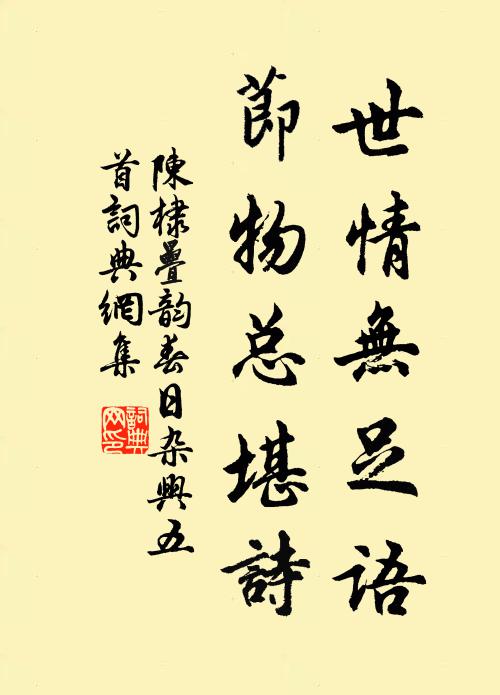 世情無足語
節物总堪詩
陳棣疊韵春日杂興五
首詞典網集
詞典
网印